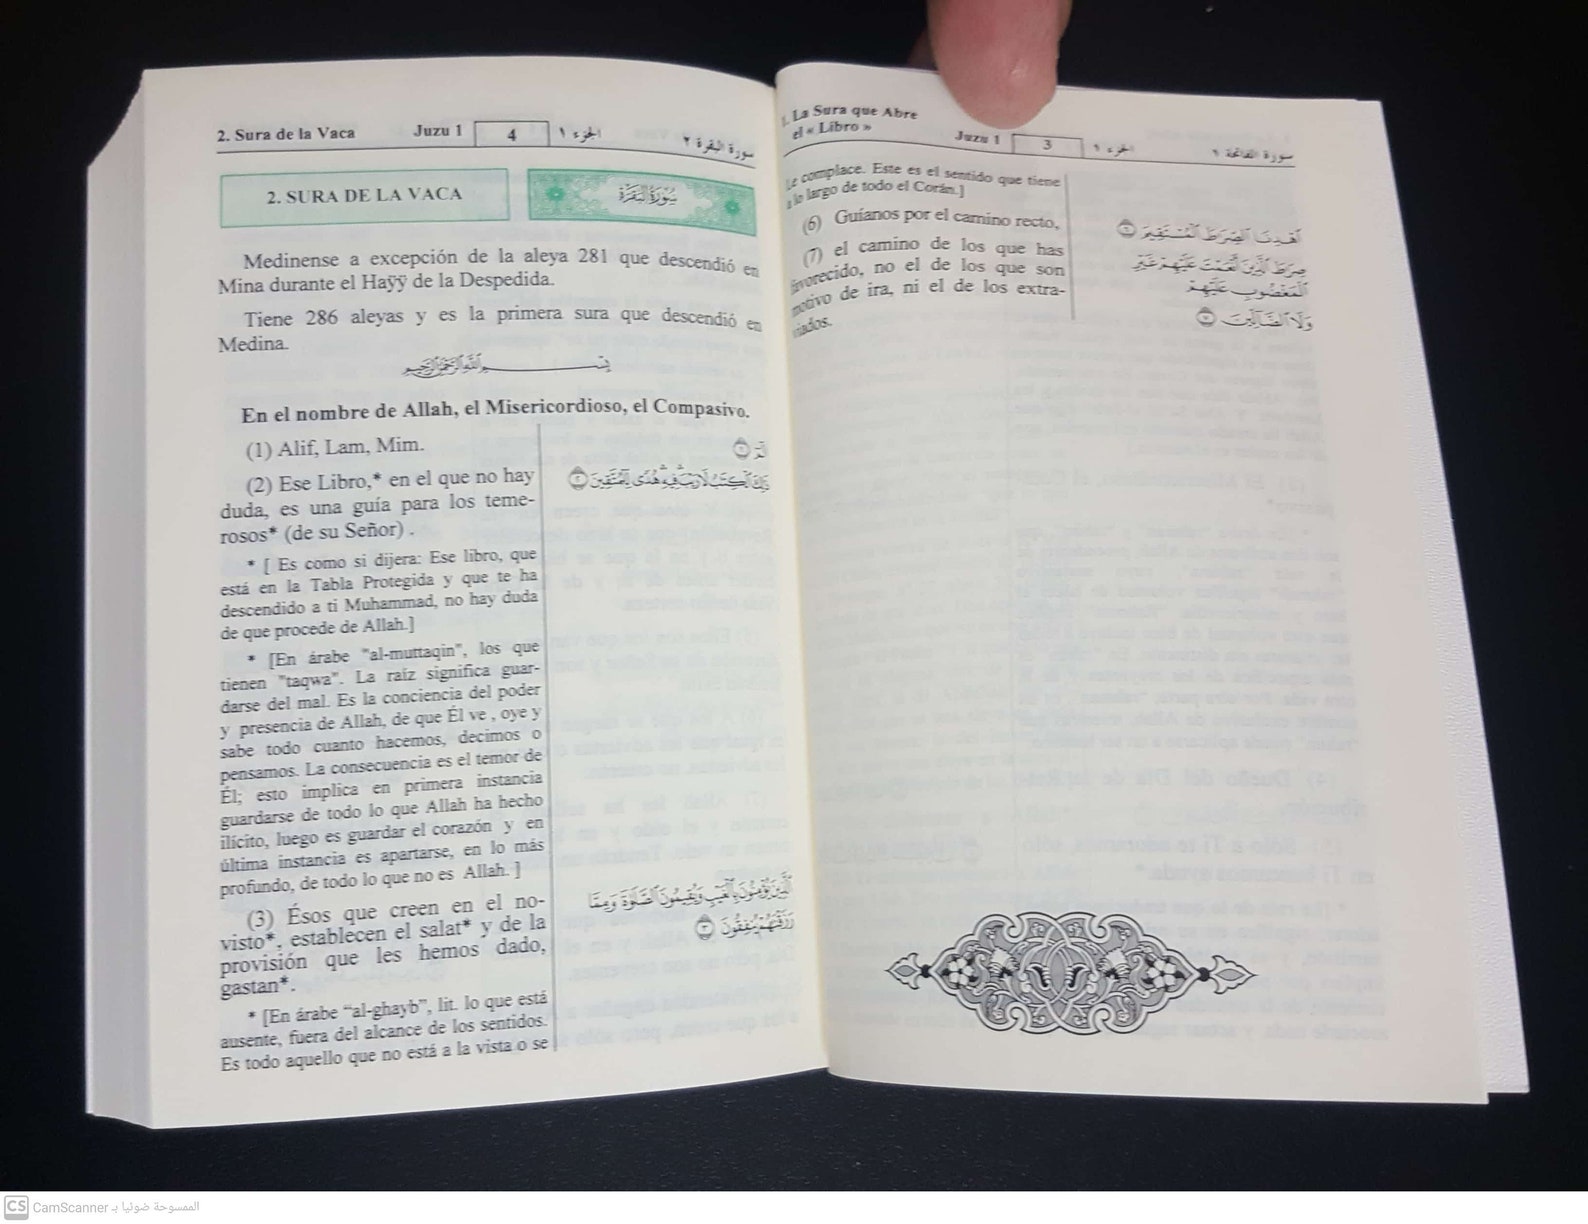 1. La Sura que Abre
el « Libro »
Juzu 1
3
الجزء ١
سورة الفاتحة ١
Le complace. Este es el sentido que tiene
a lo largo de todo el Corán.]
(6) Guíanos por el camino recto,
(7) el camino de los que has
favorecido, no el de los que son
motivo de ira, ni el de los extra-
viados.
اهْدِنَا الصِّرَاطَ الْمُسْتَقِيمَ ٦
صِرَاطَ الَّذِينَ أَنْعَمْتَ عَلَيْهِمْ غَيْرِ
الْمَغْضُوبِ عَلَيْهِمْ
وَلَا الضَّالِّينَ ٧
2. Sura de la Vaca
Juzu 1
4
الجزء ١
سورة البقرة ٢
2. SURA DE LA VACA
سُورَةُ الْبَقَرَةِ
Medinense a excepción de la aleya 281 que descendió en
Mina durante el Haÿÿ de la Despedida.
Tiene 286 aleyas y es la primera sura que descendió en
Medina.
بِسْمِ اللَّهِ الرَّحْمَٰنِ الرَّحِيمِ
En el nombre de Allah, el Misericordioso, el Compasivo.
(1) Alif, Lam, Mim.
(2) Ese Libro,* en el que no hay
duda, es una guía para los teme-
rosos* (de su Señor) .
* [ Es como si dijera: Ese libro, que
está en la Tabla Protegida y que te ha
descendido a ti Muhammad, no hay duda
de que procede de Allah.]
* [En árabe "al-muttaqin", los que
tienen "taqwa". La raíz significa guar-
darse del mal. Es la conciencia del poder
y presencia de Allah, de que Él ve , oye y
sabe todo cuanto hacemos, decimos o
pensamos. La consecuencia es el temor de
Él; esto implica en primera instancia
guardarse de todo lo que Allah ha hecho
ilícito, luego es guardar el corazón y en
última instancia es apartarse, en lo más
profundo, de todo lo que no es Allah. ]
(3) Ésos que creen en el no-
visto*, establecen el salat* y de la
provisión que les hemos dado,
gastan*.
* [En árabe “al-ghayb”, lit. lo que está
ausente, fuera del alcance de los sentidos.
Es todo aquello que no está a la vista o se
الٓمٓ ١
ذَٰلِكَ الْكِتَابُ لَا رَيْبَ ۛ فِيهِ ۛ هُدًى لِّلْمُتَّقِينَ ٢
الَّذِينَ يُؤْمِنُونَ بِالْغَيْبِ وَيُقِيمُونَ الصَّلَاةَ وَمِمَّا
رَزَقْنَاهُمْ يُنفِقُونَ ٣
CS CamScanner الممسوحة ضوئيا بـ